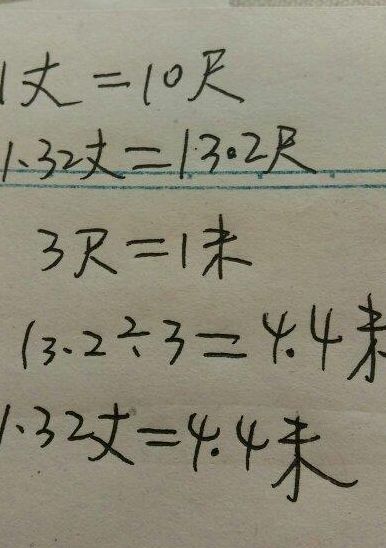 1丈=10尺
1.32丈=13.2尺
3尺=1米
13.2÷3=4.4米
1.32丈=4.4米